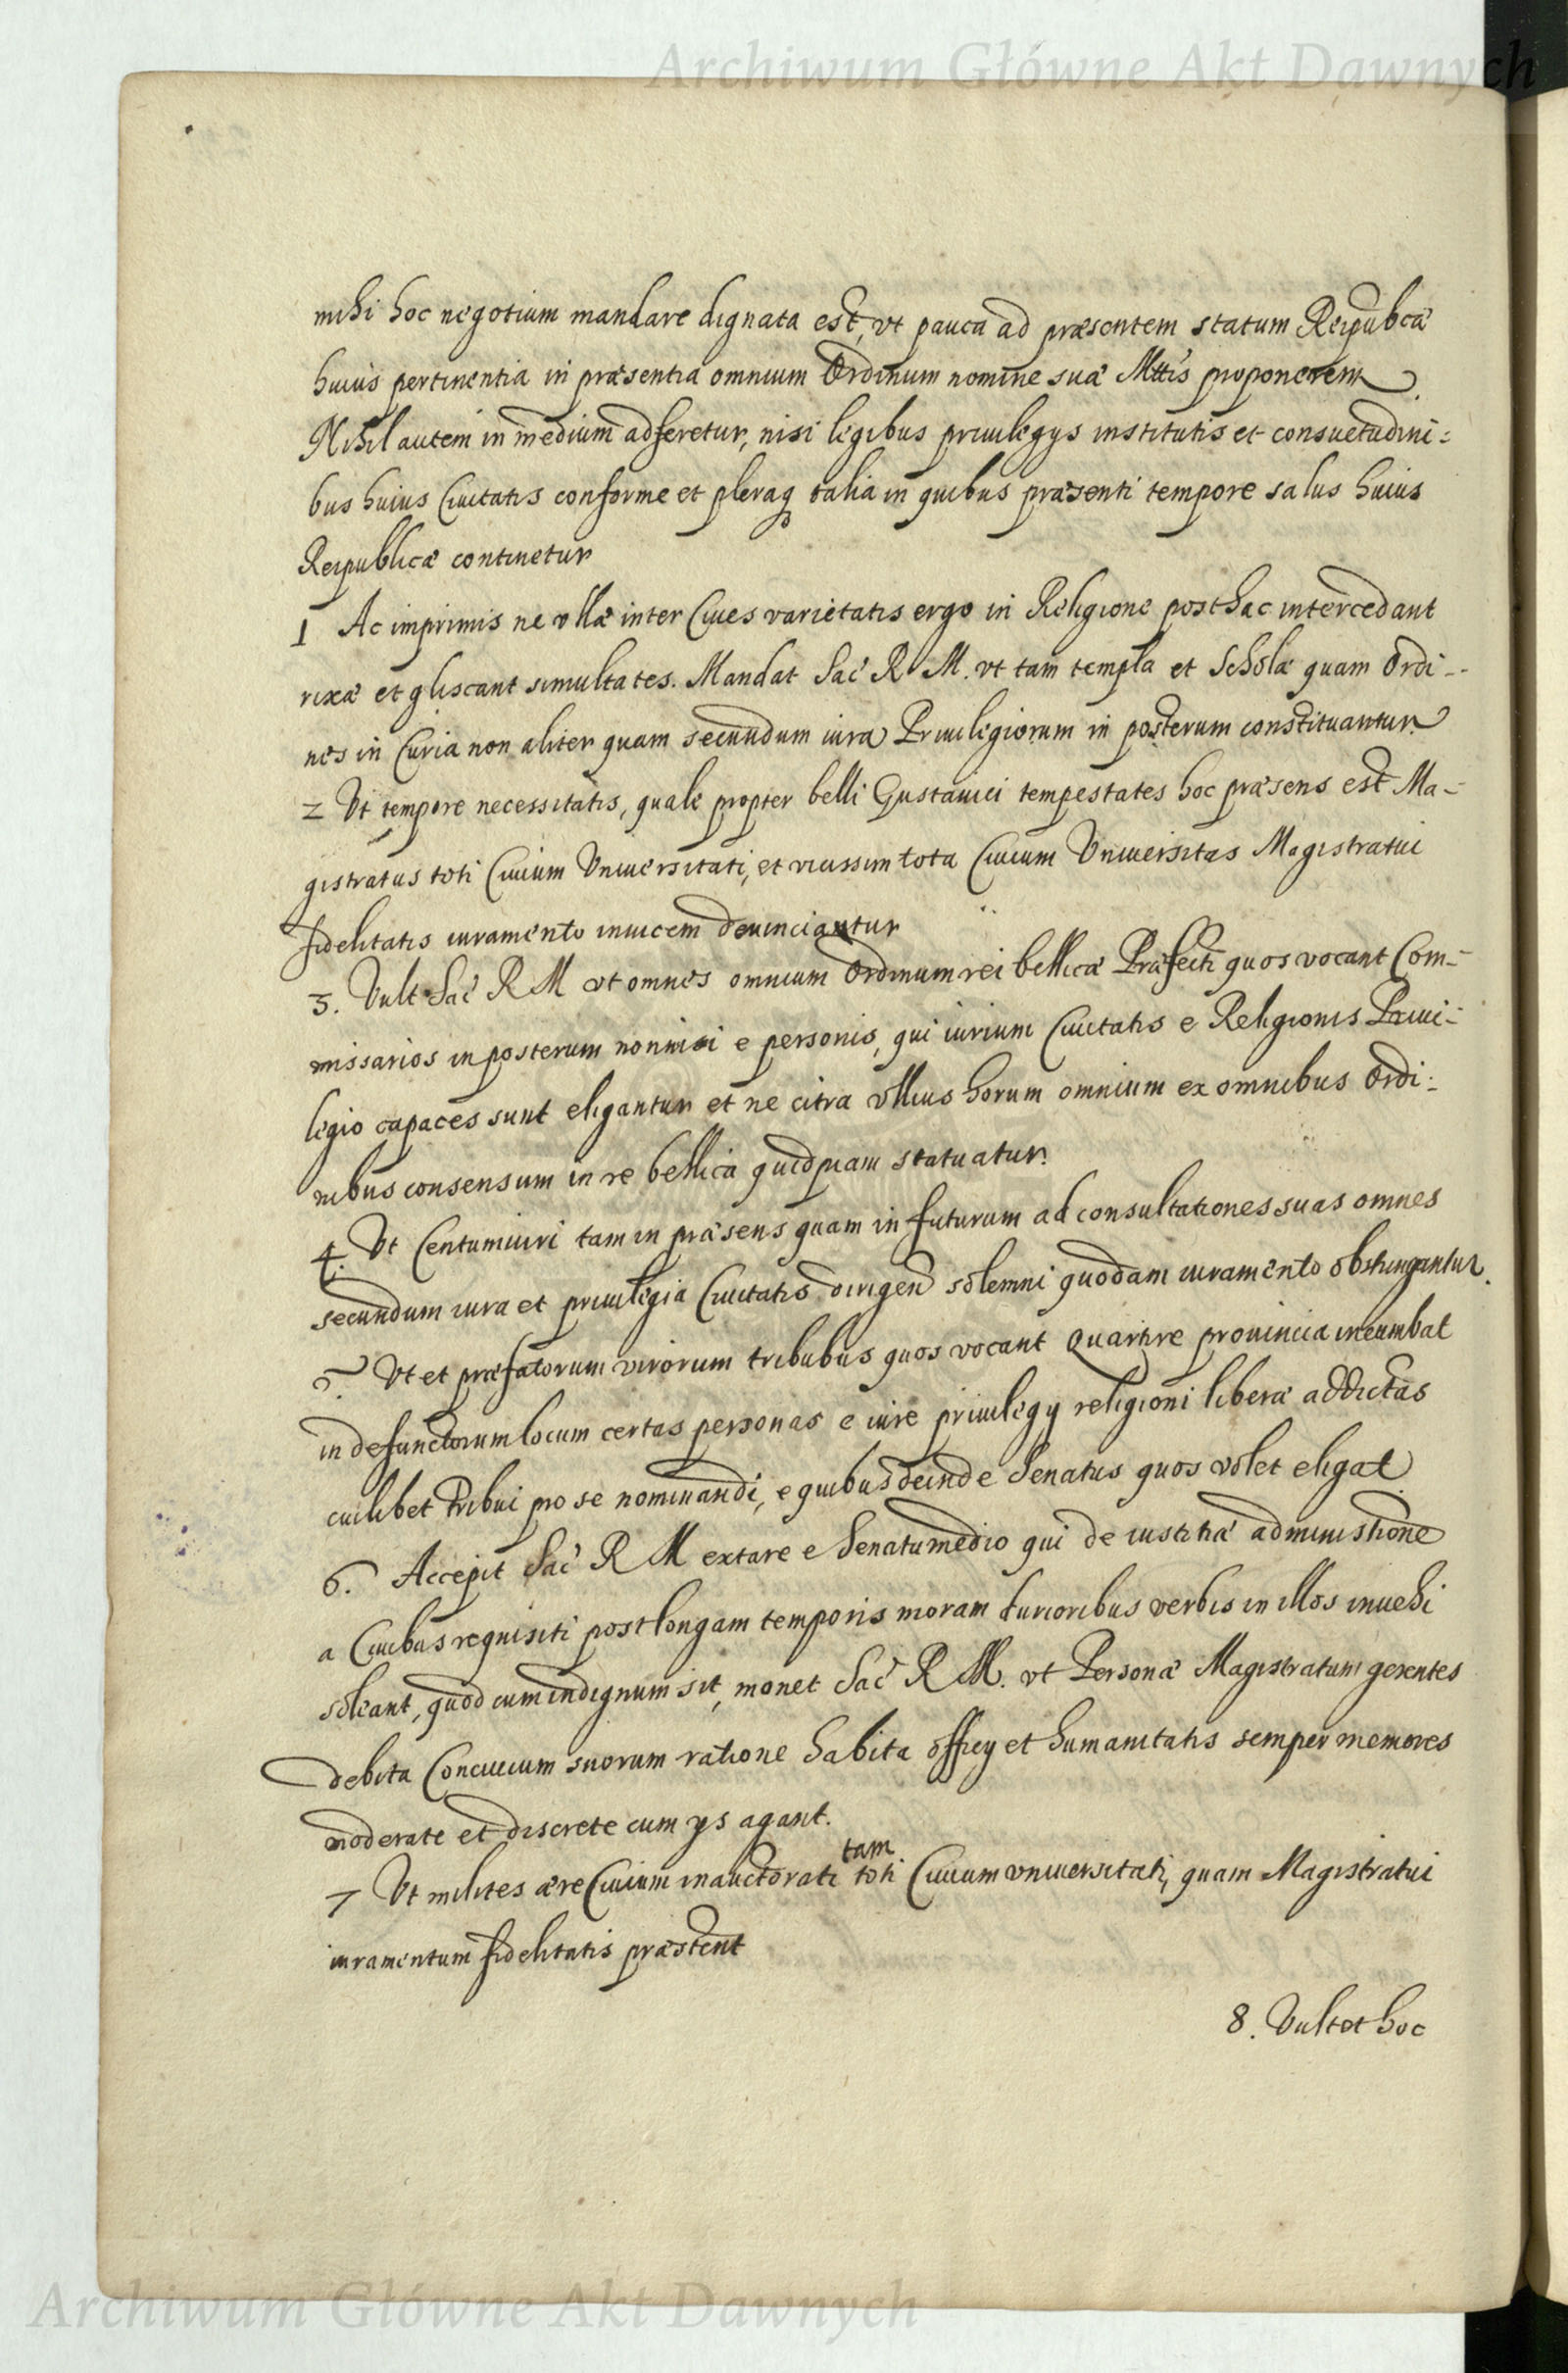 Archiwum Główne Akt Dawnych
mihi hoc negotium mandare dignata est, vt pauca ad præsentem statum Reipubcæ
huius pertinentia in præsentia omnium Ordinum nomine suæ Mttis proponerem
Nihil autem in medium adferetur, nisi legibus priuilegys institutis et consuetudini-
bus huius Ciuitatis conforme et pleraq talia in quibus præsenti tempore salus huius
Reipublicæ continetur
1 Ac imprimis ne vllæ inter Ciues varietatis ergo in Religione posthac intercedant
rixæ et gliscant simultates. Mandat Sac R M. vt tam templa et Scholæ quam Ordi-
nes in Curia non aliter quam secundum iura Priuilegiorum in posterum constituantur
2 Vt tempore necessitatis, quale propter belli Gustauici tempestates hoc præsens est Ma-
gistratus toti Ciuium Vniuersitati, et vicissim tota Ciuium Vniuersitas Magistratui
fidelitatis iuramento inuicem deuinciantur
3. Vult Sac R M vt omnes omnium Ordinum rei bellicæ Præfecti quos vocant Com-
missarios in posterum non nisi e personis, qui iurium Ciuitatis e Religionis Priui-
legio capaces sunt eligantur et ne citra vllius horum omnium ex omnibus Ordi-
nibus consensum in re bellica quidpiam statuatur.
4. Vt Centumuiri tam in præsens quam in futurum ad consultationes suas omnes
secundum iura et priuilegia Ciuitatis dirigen solemni quodam iuramento obstringantur.
5. Vt et præfatorum virorum tribubus quos vocant Quartire prouincia incumbat
in defunctorum locum certas personas e iure priuilegy religioni liberæ addictas
cuilibet tribui pro se nominandi, e quibus deinde Senatus quos volet eligat
6. Accepit Sac R M extare e Senatu medio qui de iustitiæ administione
a Ciuibus requisiti post longam temporis moram durioribus verbis in illos inuehi
soleant, quod cum indignum sit, monet Sac R M. vt Personæ Magistratum gerentes
debita Conciuium suorum ratione habita officy et humanitatis semper memores
moderate et discrete cum ys agant.
7 Vt milites ære Ciuium inauctorati tam toti Ciuium vniuersitati, quam Magistratui
iuramentum fidelitatis præstent
8. Vult et hoc
Archiwum Główne Akt Dawnych